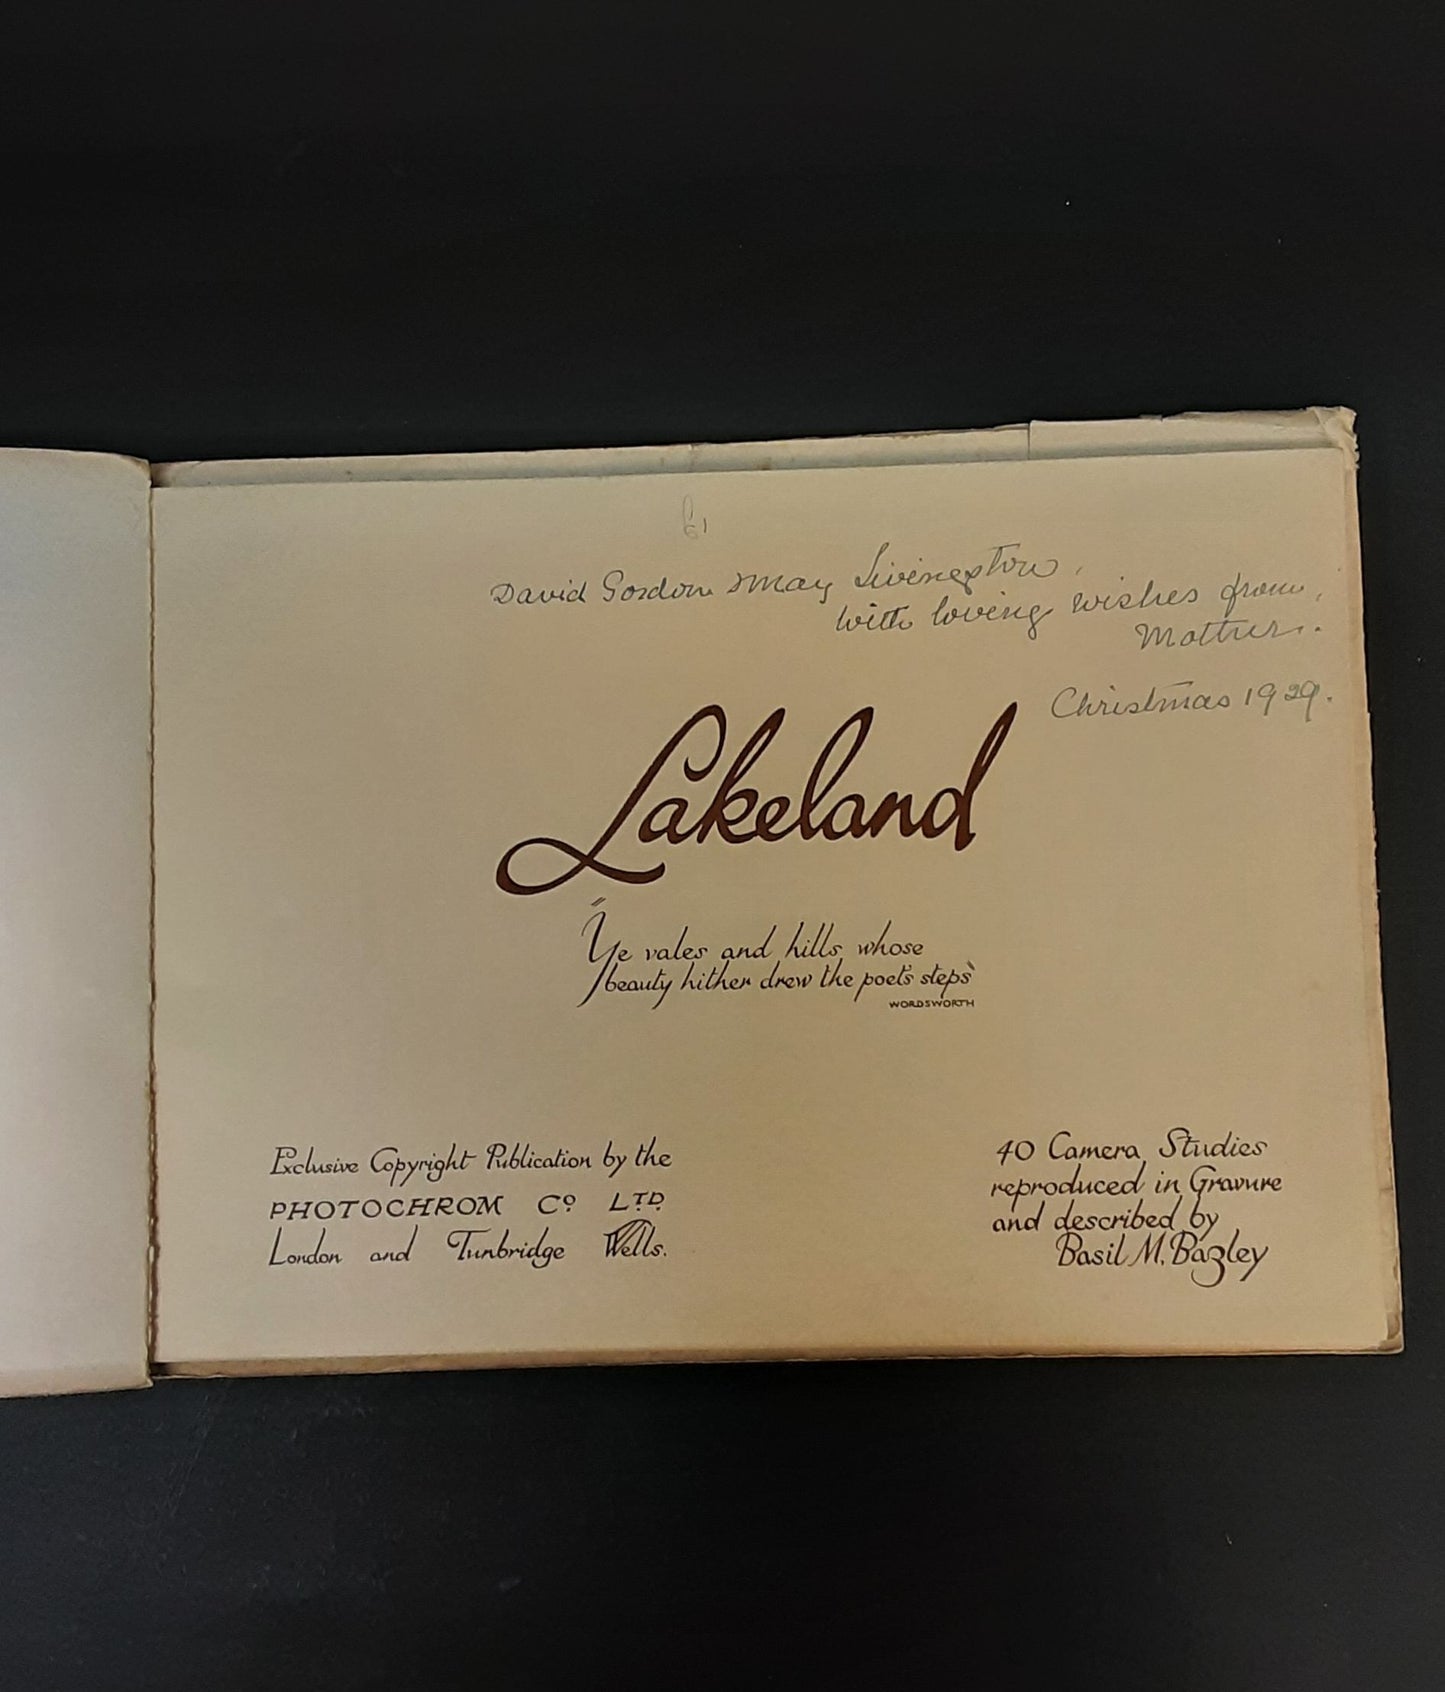 David Gordon & May Livingston,
with loving wishes from,
Mother.
Christmas 1929.
Lakeland
"Ye vales and hills, whose
beauty hither drew the poet's steps"
WORDSWORTH
Exclusive Copyright Publication by the
PHOTOCHROM Cº LTD.
London and Tunbridge Wells.
40 Camera Studies
reproduced in Gravure
and described by
Basil M. Bazley